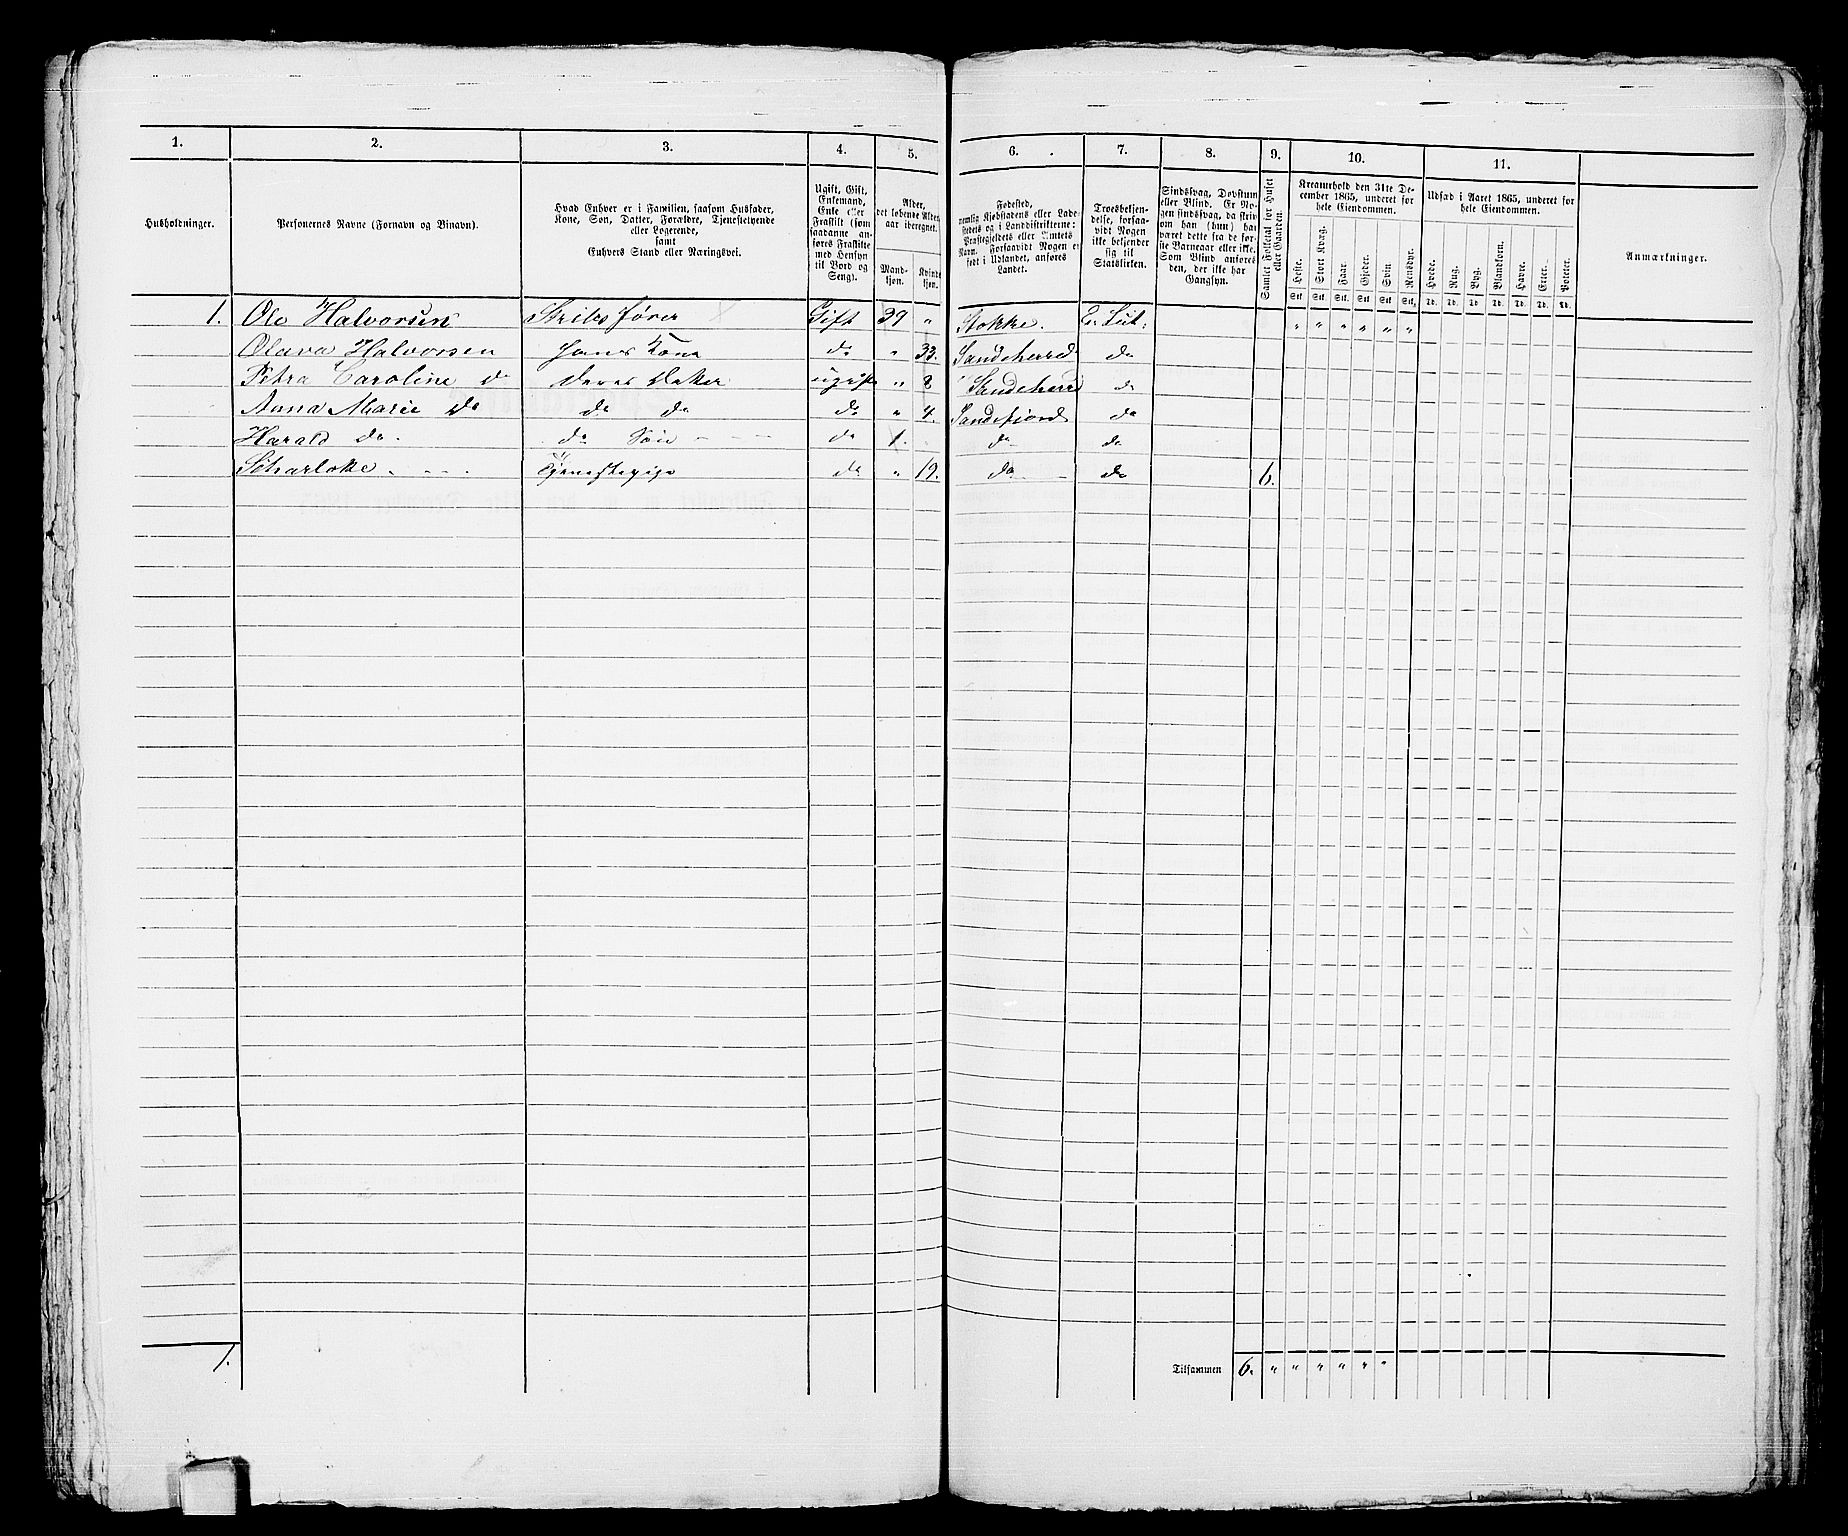 1. 2. 3. 4. 5. 6. 7. 8. 9. 10. 11.
Husholdninger.
Personernes Navne (Fornavn og Binavn).
Hvad Enhver er i Familien, saasom Husfader,
Kone, Søn, Datter, Forældre, Tjenestetyende
eller Logerende,
samt
Enhvers Stand eller Næringsvei.
Ugift, Gift,
Enkemand,
Enke eller
Fraskilt (som
saadanne an-
føres Fraskilte
med Hensyn
til Bord og
Seng).
Alder,
det løbende Alders-
aar iberegnet.
Mand-
kjøn.
Kvinde-
kjøn.
Fødested,
nemlig Kjøbstadens eller Lade-
stedets og i Landdistrikterne:
Præstegjeldets eller Amtets
Navn. Forsaavidt Nogen er
født i Udlandet, anføres
Landet.
Troesbekjen-
delse, forsaa-
vidt Nogen
ikke bekjender
sig til
Statskirken.
Sindssvag, Døvstum
eller Blind. Er No-
gen sindssvag, da skriv
om han (hun) har
været dette fra de før-
ste Barneaar eller ikke.
Som Blind anføres
den, der ikke har
Gangsyn.
Samlet Folketal for Huset
eller Gaarden.
Kreaturhold den 31te De-
cember 1865, underet for
hele Eiendommen.
Heste. Stort Kvæg. Faar. Gjeder. Svin. Rensdyr.
Stk. Stk. Stk. Stk. Stk. Stk.
Udsæd i Aaret 1865, underet for
hele Eiendommen.
Hvede. Rug. Byg. Blandkorn. Havre. Erter. Poteter.
Td. Td. Td. Td. Td. Td. Td.
Anmærkninger.
1. Ole Halvorsen Gift 39 " Stokke. Ev. Lut. " " " " " "
Olava Halvorsen Hans Kone do " 33. Sandeherred do
Petra Caroline do deres Datter ugift " 8 Sandeherred do
Anna Marie do do do do " 4. Sandefjord do
Harald do. do Søn do 1. do do
Tjenestepige do " 19. do do 6.
1. Tilsammen 6. " " " " " "